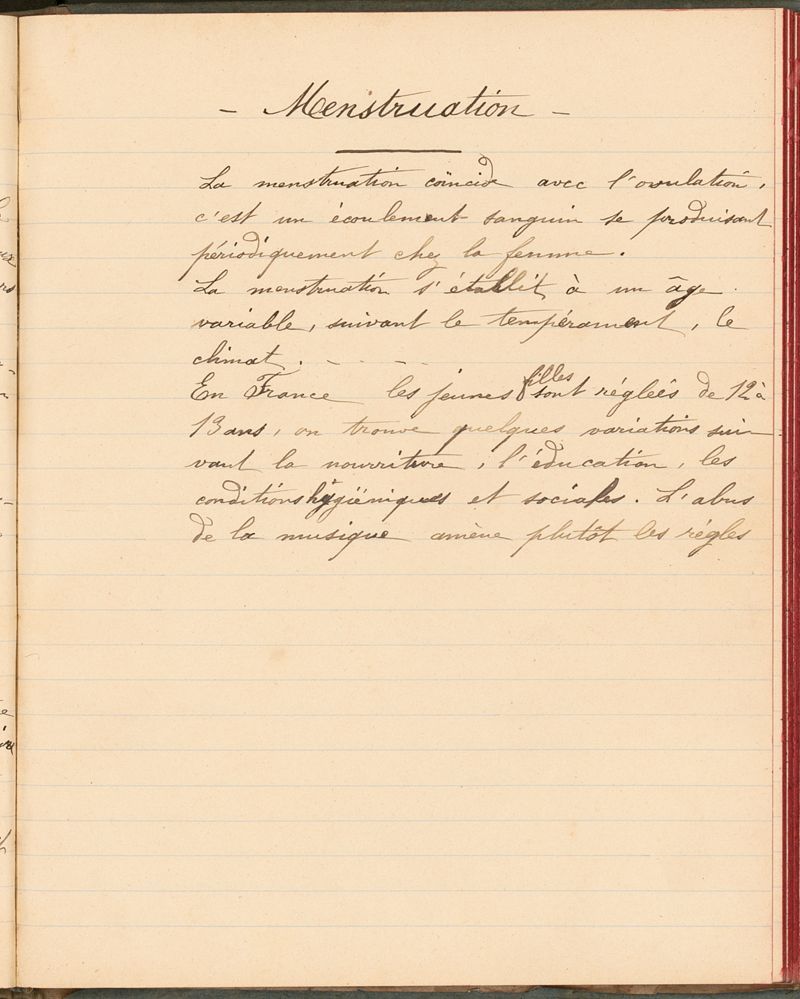 - Menstruation -
La menstruation coïncide avec l'ovulation,
c'est un écoulement sanguin se produisant
périodiquement chez la femme.
La menstruation s'établit à un âge
variable, suivant le tempérament, le
climat. - - - -
En France les jeunes filles sont réglées de 12 à
13 ans, on trouve quelques variations sui-
vant la nourriture, l'éducation, les
conditions hygiéniques et sociales. L'abus
de la musique amène plutôt les règles